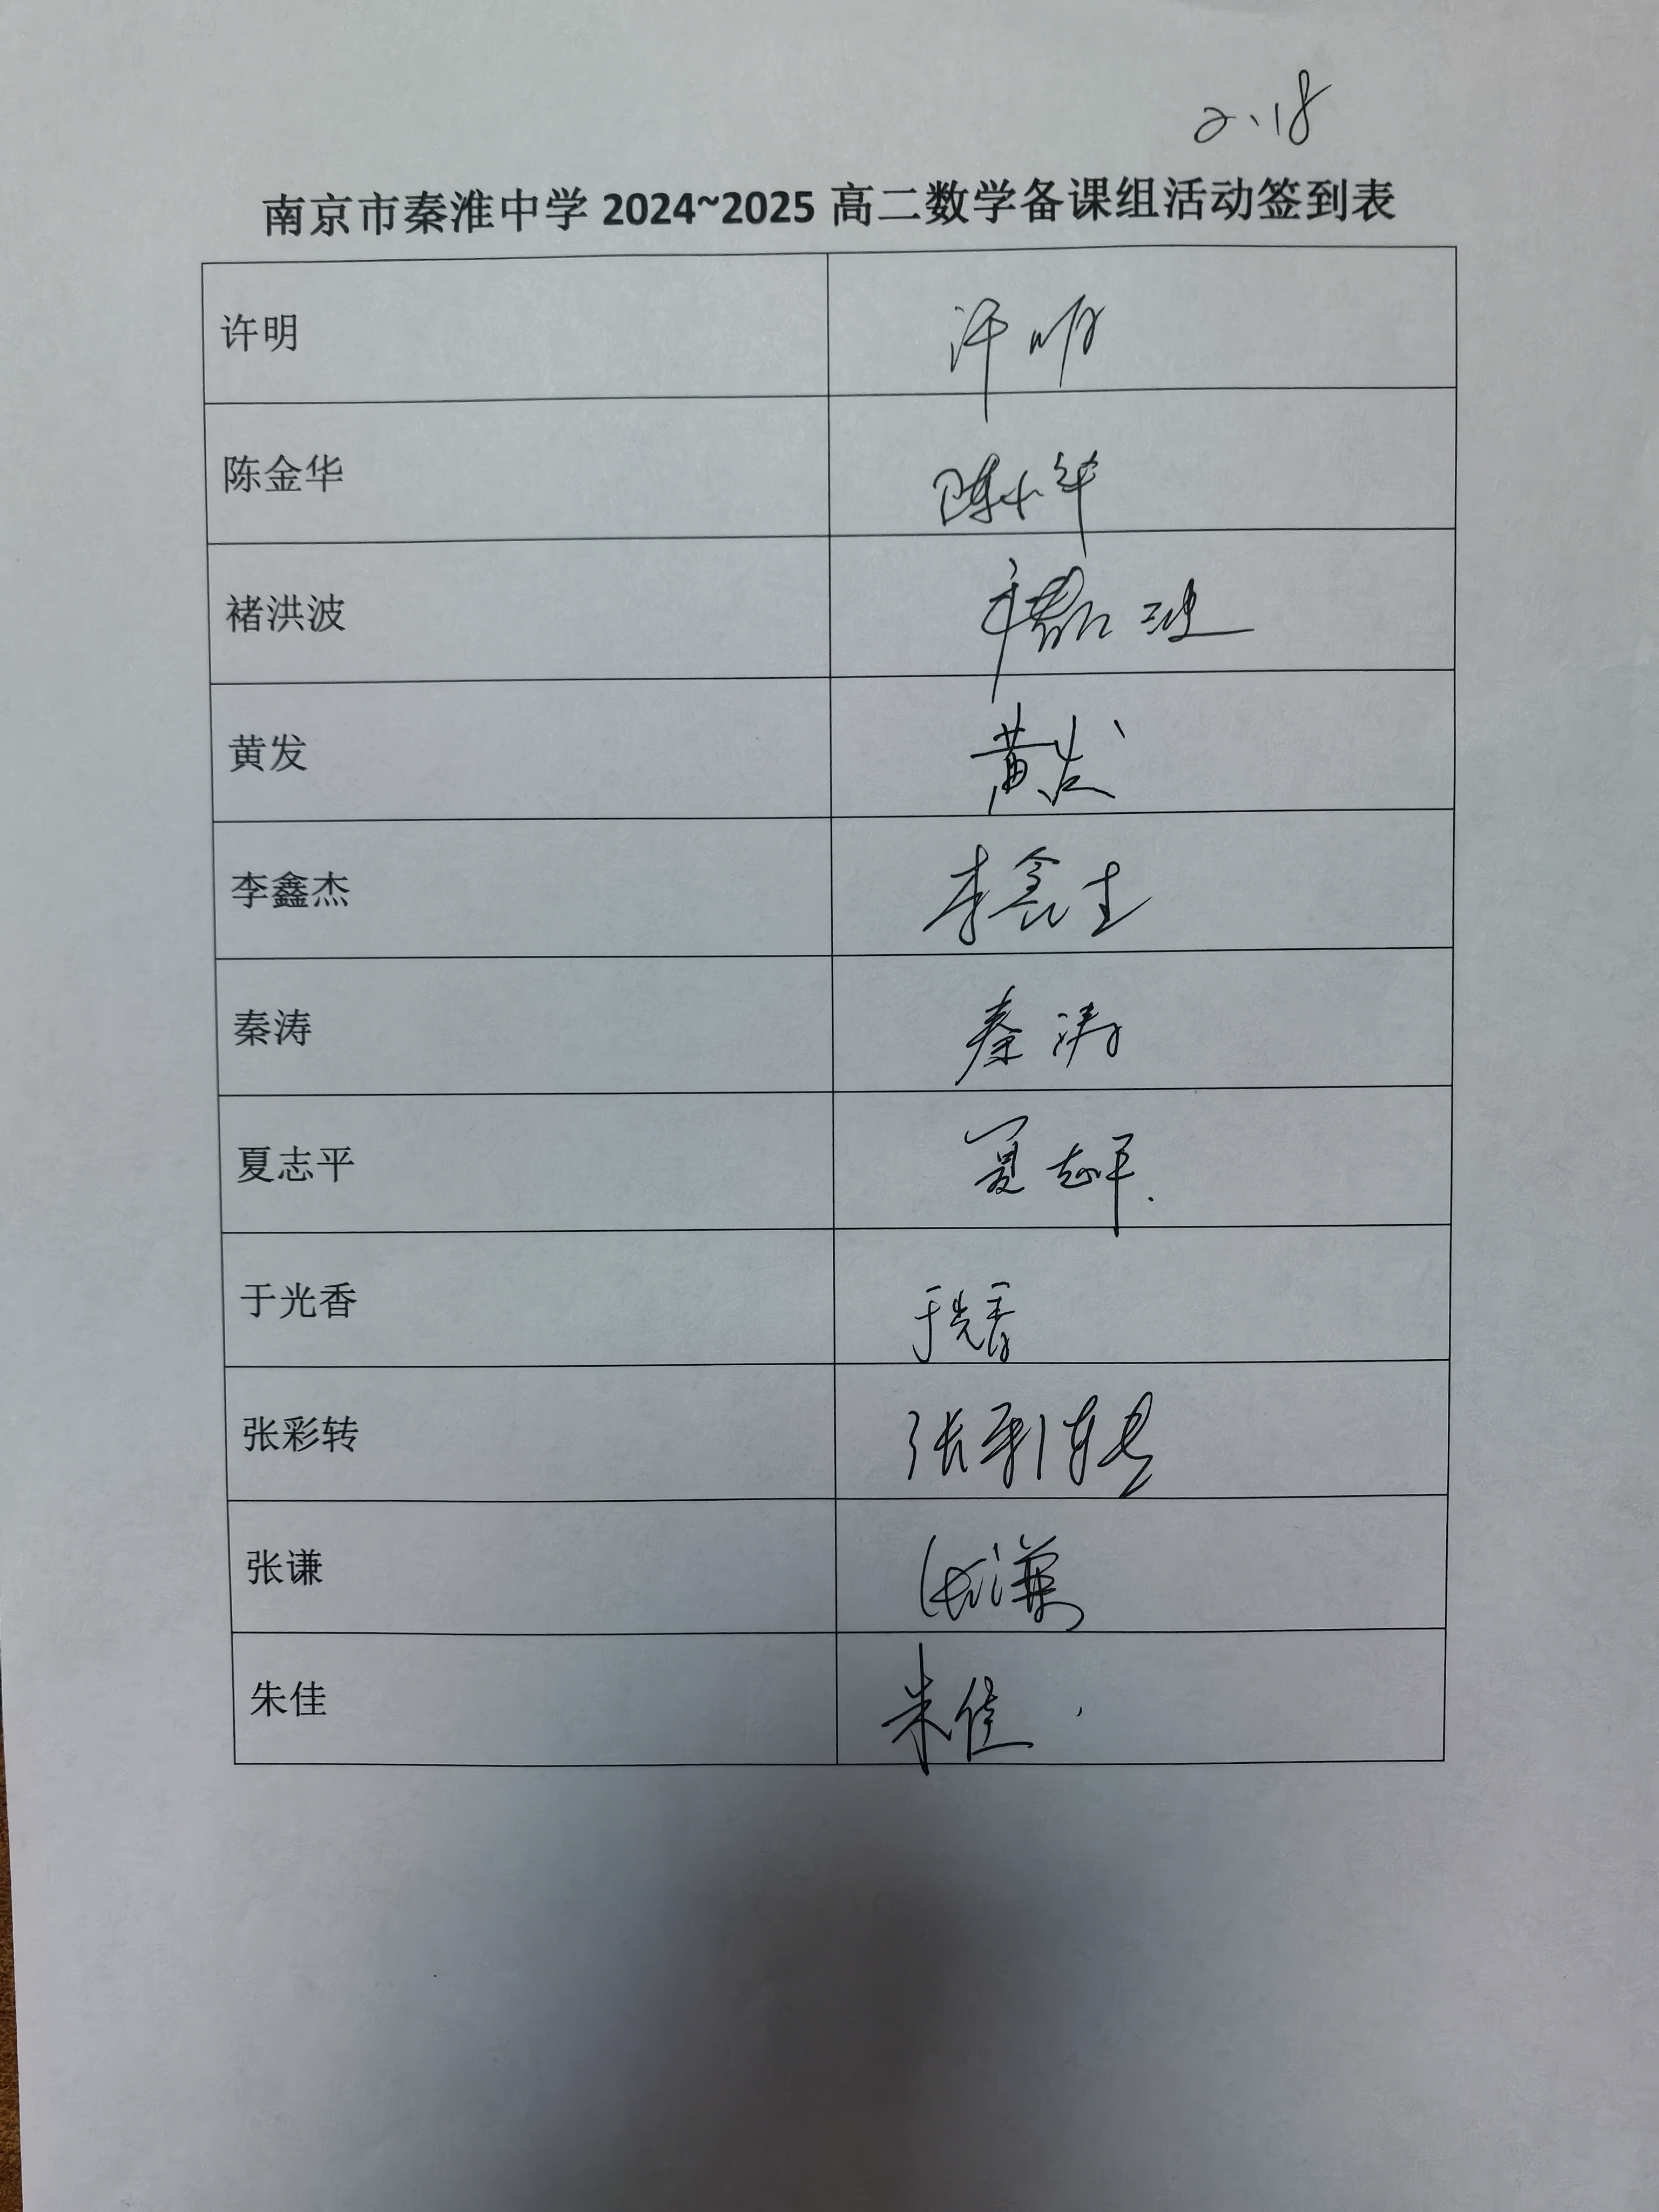 2.18
南京市秦淮中学 2024~2025 高二数学备课组活动签到表
许明 许明
陈金华 陈金华
褚洪波
黄发 黄发
李鑫杰 李鑫杰
秦涛 秦涛
夏志平 夏志平.
于光香 于光香
张彩转 张彩转
张谦 张谦
朱佳 朱佳